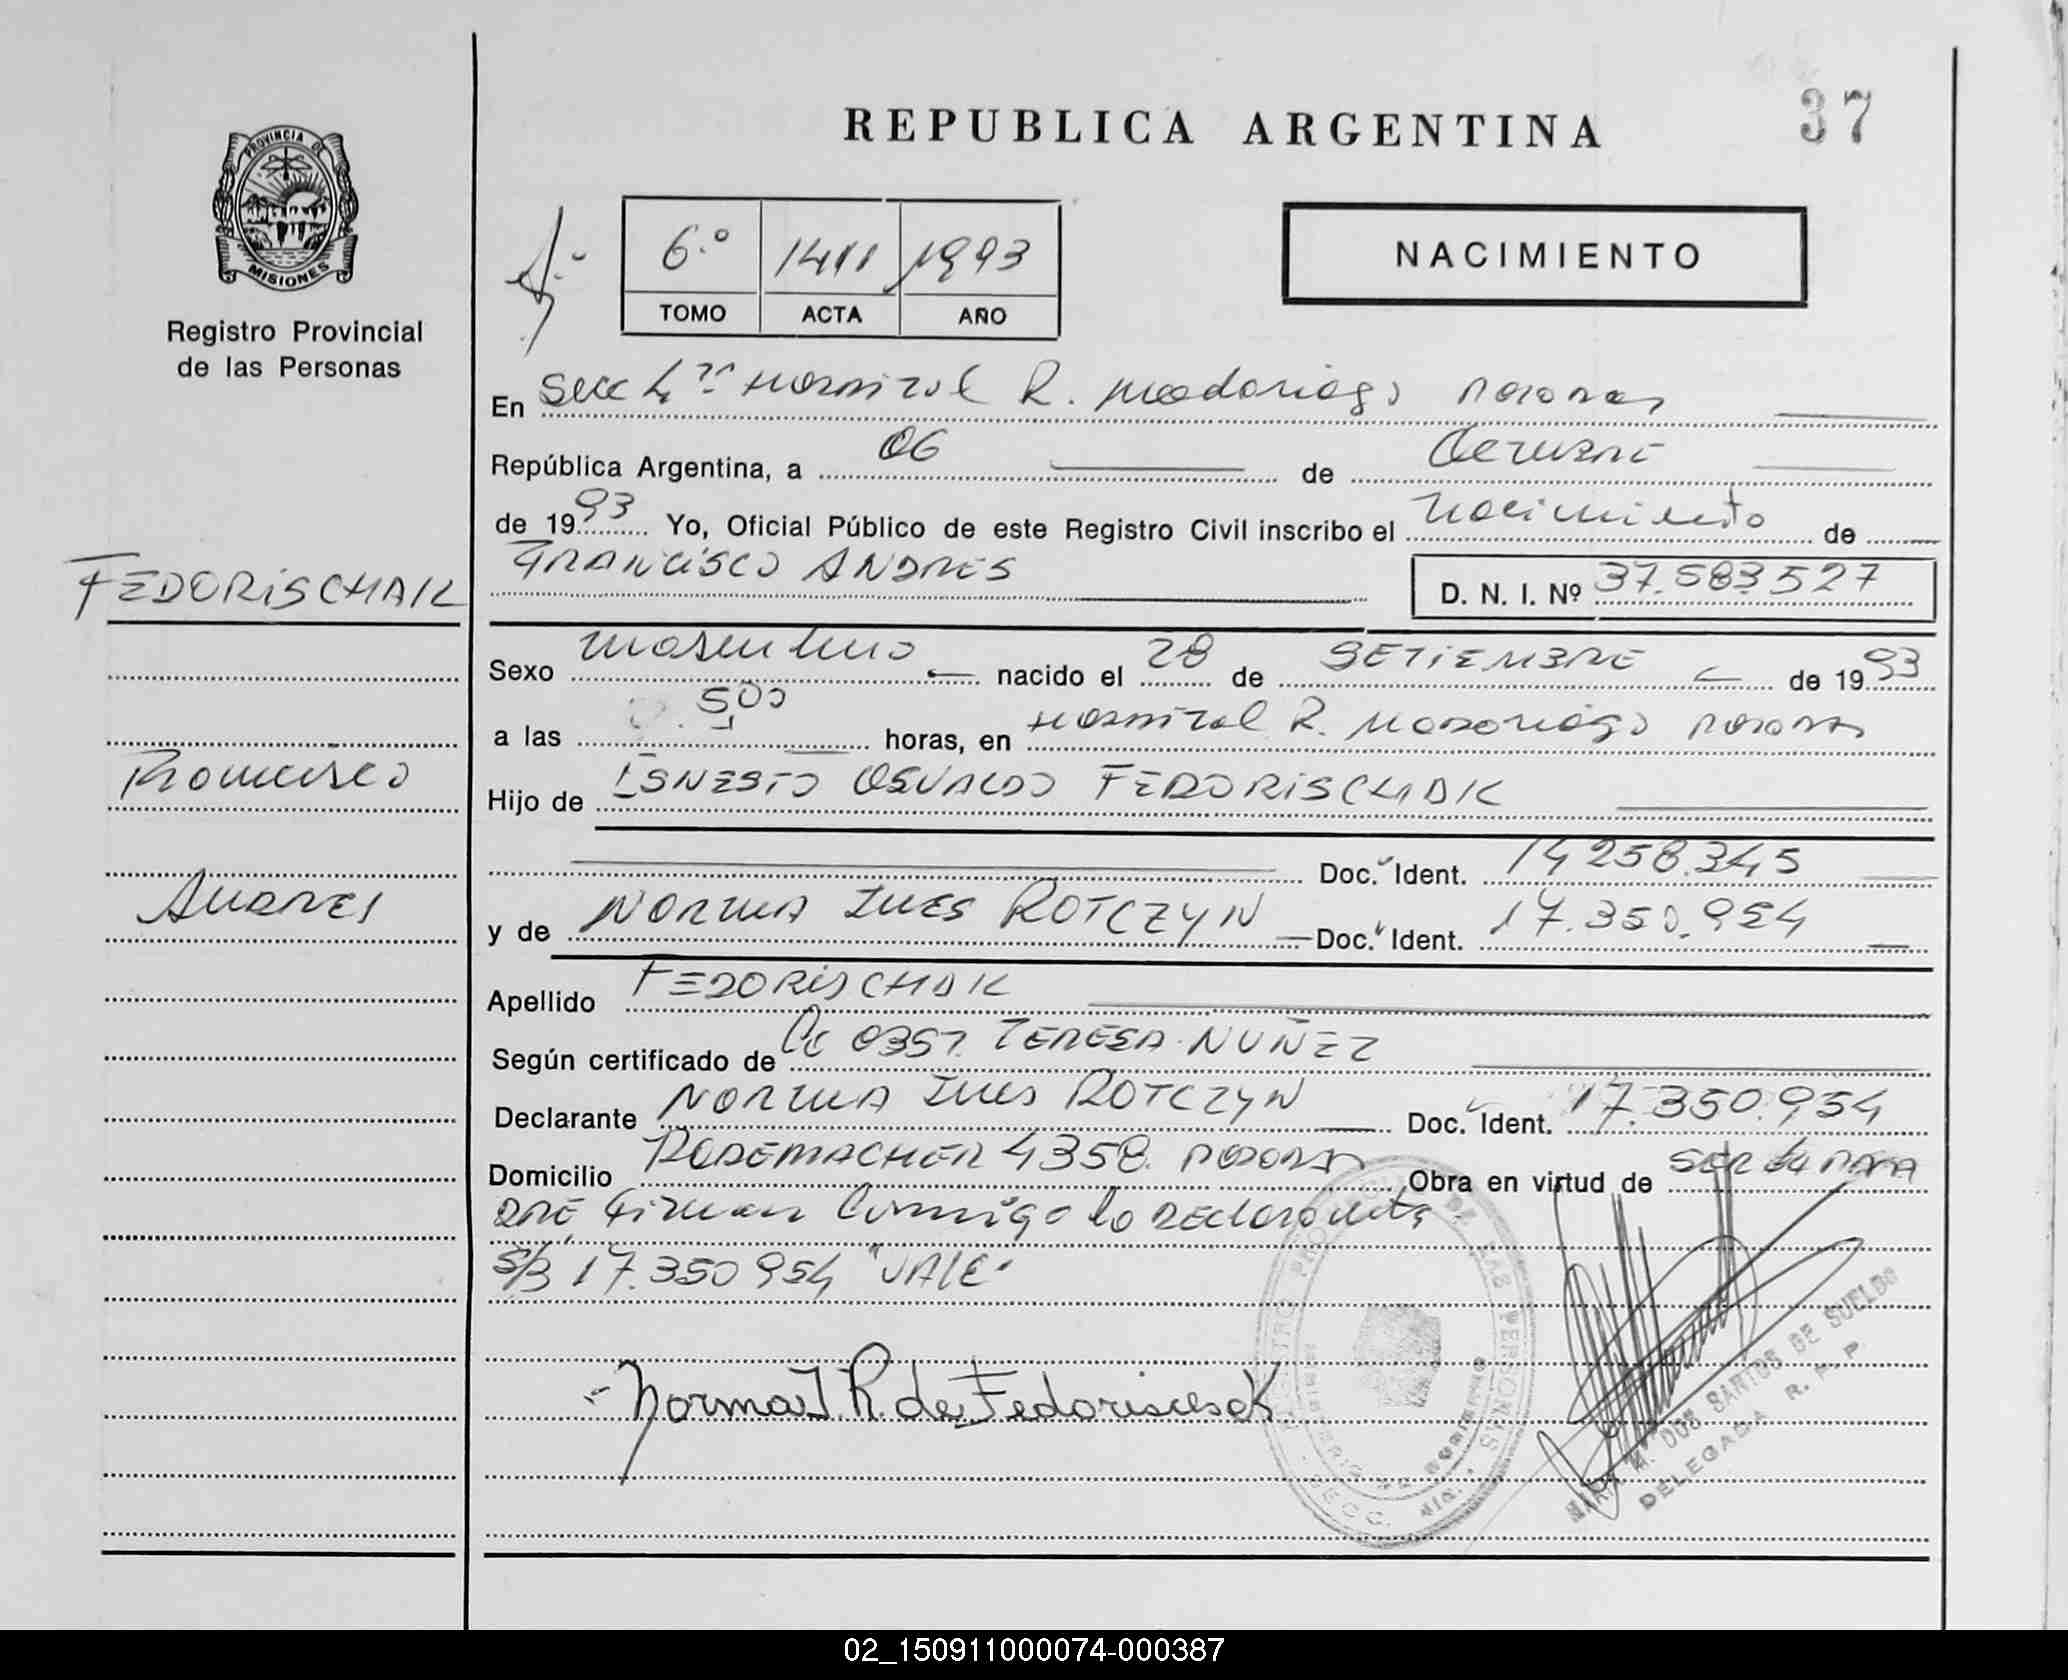 REPUBLICA ARGENTINA
37
PROVINCIA DE
MISIONES
Registro Provincial
de las Personas
6.º 1411 1993
TOMO ACTA AÑO
NACIMIENTO
En Secc 4ª Hospital R. Madariaga Posadas
República Argentina, a 06 de Octubre
de 1993 Yo, Oficial Público de este Registro Civil inscribo el Nacimiento de
FRANCISCO ANDRES
D. N. I. Nº 37.583.527
FEDORISCHAK
Francisco
Andres
Sexo Masculino nacido el 28 de SETIEMBRE de 1993
a las 5,00 horas, en Hospital R. Madariaga Posadas
Hijo de ERNESTO OSVALDO FEDORISCHAK
Doc. Ident. 14.258.345
y de NORMA INES ROTCZYN Doc. Ident. 17.350.954
Apellido FEDORISCHAK
Según certificado de TERESA NUÑEZ
Declarante NORMA INES ROTCZYN Doc. Ident. 17.350.954
Domicilio RADEMACHER 4358 Posadas Obra en virtud de SER LA MA
DRE Firman conmigo la declarante
S/B 17.350.954 "VALE"
Norma I. R. de Fedorischak
REGISTRO PROVINCIAL DE LAS PERSONAS
MINISTERIO DE GOBIERNO
MARIA M. DOS SANTOS DE SUELDO
DELEGADA R. P. P.
02_150911000074-000387